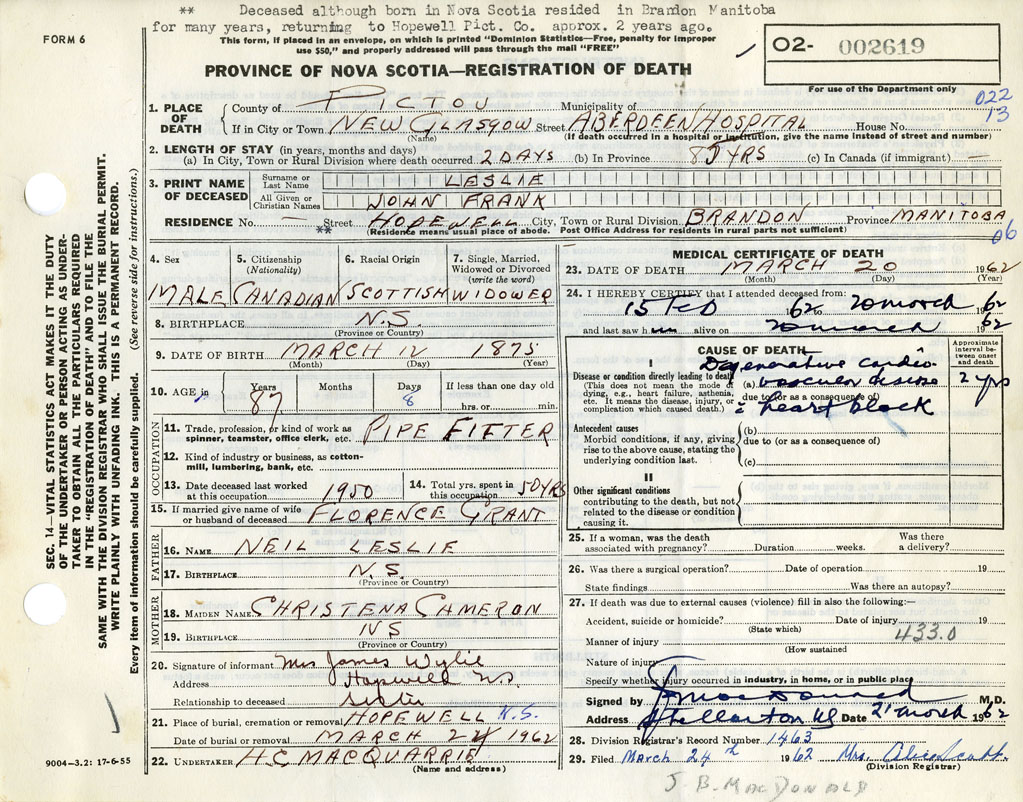 ** Deceased although born in Nova Scotia resided in Brandon Manitoba
for many years, returning to Hopewell Pict. Co. approx. 2 years ago.
FORM 6
This form, if placed in an envelope, on which is printed "Dominion Statistics—Free, penalty for improper
use $50," and properly addressed will pass through the mail "FREE"
O2- 002619
PROVINCE OF NOVA SCOTIA—REGISTRATION OF DEATH
For use of the Department only
022
13
SEC. 14—VITAL STATISTICS ACT MAKES IT THE DUTY
OF THE UNDERTAKER OR PERSON ACTING AS UNDER-
TAKER TO OBTAIN ALL THE PARTICULARS REQUIRED
IN THE "REGISTRATION OF DEATH" AND TO FILE THE
SAME WITH THE DIVISION REGISTRAR WHO SHALL ISSUE THE BURIAL PERMIT.
WRITE PLAINLY WITH UNFADING INK. THIS IS A PERMANENT RECORD.
Every item of information should be carefully supplied. (See reverse side for instructions.)
1. PLACE OF DEATH
County of PICTOU Municipality of
If in City or Town NEW GLASGOW Street ABERDEEN HOSPITAL House No.
(Name) (If death occurred in a hospital or institution, give the name instead of street and number)
2. LENGTH OF STAY (in years, months and days)
(a) In City, Town or Rural Division where death occurred 2 DAYS (b) In Province 85 YRS (c) In Canada (if immigrant) —
3. PRINT NAME OF DECEASED
Surname or Last Name LESLIE
All Given or Christian Names JOHN FRANK
RESIDENCE No. — Street HOPEWELL City, Town or Rural Division BRANDON Province MANITOBA
** (Residence means usual place of abode. Post Office Address for residents in rural parts not sufficient)
06
4. Sex 5. Citizenship (Nationality) 6. Racial Origin 7. Single, Married, Widowed or Divorced (write the word)
MALE CANADIAN SCOTTISH WIDOWER
8. BIRTHPLACE N.S.
(Province or Country)
9. DATE OF BIRTH MARCH 12 1875
(Month) (Day) (Year)
10. AGE in Years 87 Months Days 8 If less than one day old hrs. or min.
OCCUPATION
11. Trade, profession, or kind of work as spinner, teamster, office clerk, etc. PIPE FITTER
12. Kind of industry or business, as cotton-mill, lumbering, bank, etc.
13. Date deceased last worked at this occupation 1950 14. Total yrs. spent in this occupation 50 YRS
15. If married give name of wife or husband of deceased FLORENCE GRANT
FATHER
16. NAME NEIL LESLIE
17. BIRTHPLACE N.S.
(Province or Country)
MOTHER
18. MAIDEN NAME CHRISTENA CAMERON
19. BIRTHPLACE NS
(Province or Country)
20. Signature of informant Mrs James Wylie
Address Hopewell NS.
Relationship to deceased Sister
21. Place of burial, cremation or removal HOPEWELL N.S.
Date of burial or removal MARCH 22 1962
22. UNDERTAKER H.C MACQUARRIE
(Name and address)
9004—3.2: 17-6-55
MEDICAL CERTIFICATE OF DEATH
23. DATE OF DEATH MARCH 20 1962
(Month) (Day) (Year)
24. I HEREBY CERTIFY that I attended deceased from:
15 Feb 62 to 20 march 1962
and last saw h im alive on 20 march 1962
CAUSE OF DEATH
Approximate interval between onset and death
I
Disease or condition directly leading to death
(This does not mean the mode of dying, e.g., heart failure, asthenia, etc. It means the disease, injury, or complication which caused death.)
Degenerative cardio
(a) vascular disease 2 yrs
due to (or as a consequence of)
heart block
Antecedent causes
Morbid conditions, if any, giving rise to the above cause, stating the underlying condition last.
(b)
due to (or as a consequence of)
(c)
II
Other significant conditions
contributing to the death, but not related to the disease or condition causing it.
25. If a woman, was the death associated with pregnancy? Duration weeks. Was there a delivery?
26. Was there a surgical operation? Date of operation 19
State findings Was there an autopsy?
27. If death was due to external causes (violence) fill in also the following:—
Accident, suicide or homicide? Date of injury 19
(State which)
433.0
Manner of injury
(How sustained
Nature of injury
Specify whether injury occurred in industry, in home, or in public place
Signed by MacDonald M.D.
Address Stellarton NS Date 21 march 1962
28. Division Registrar's Record Number 1463
29. Filed March 24th 1962 Mrs.
(Division Registrar)
J. B. MACDONALD